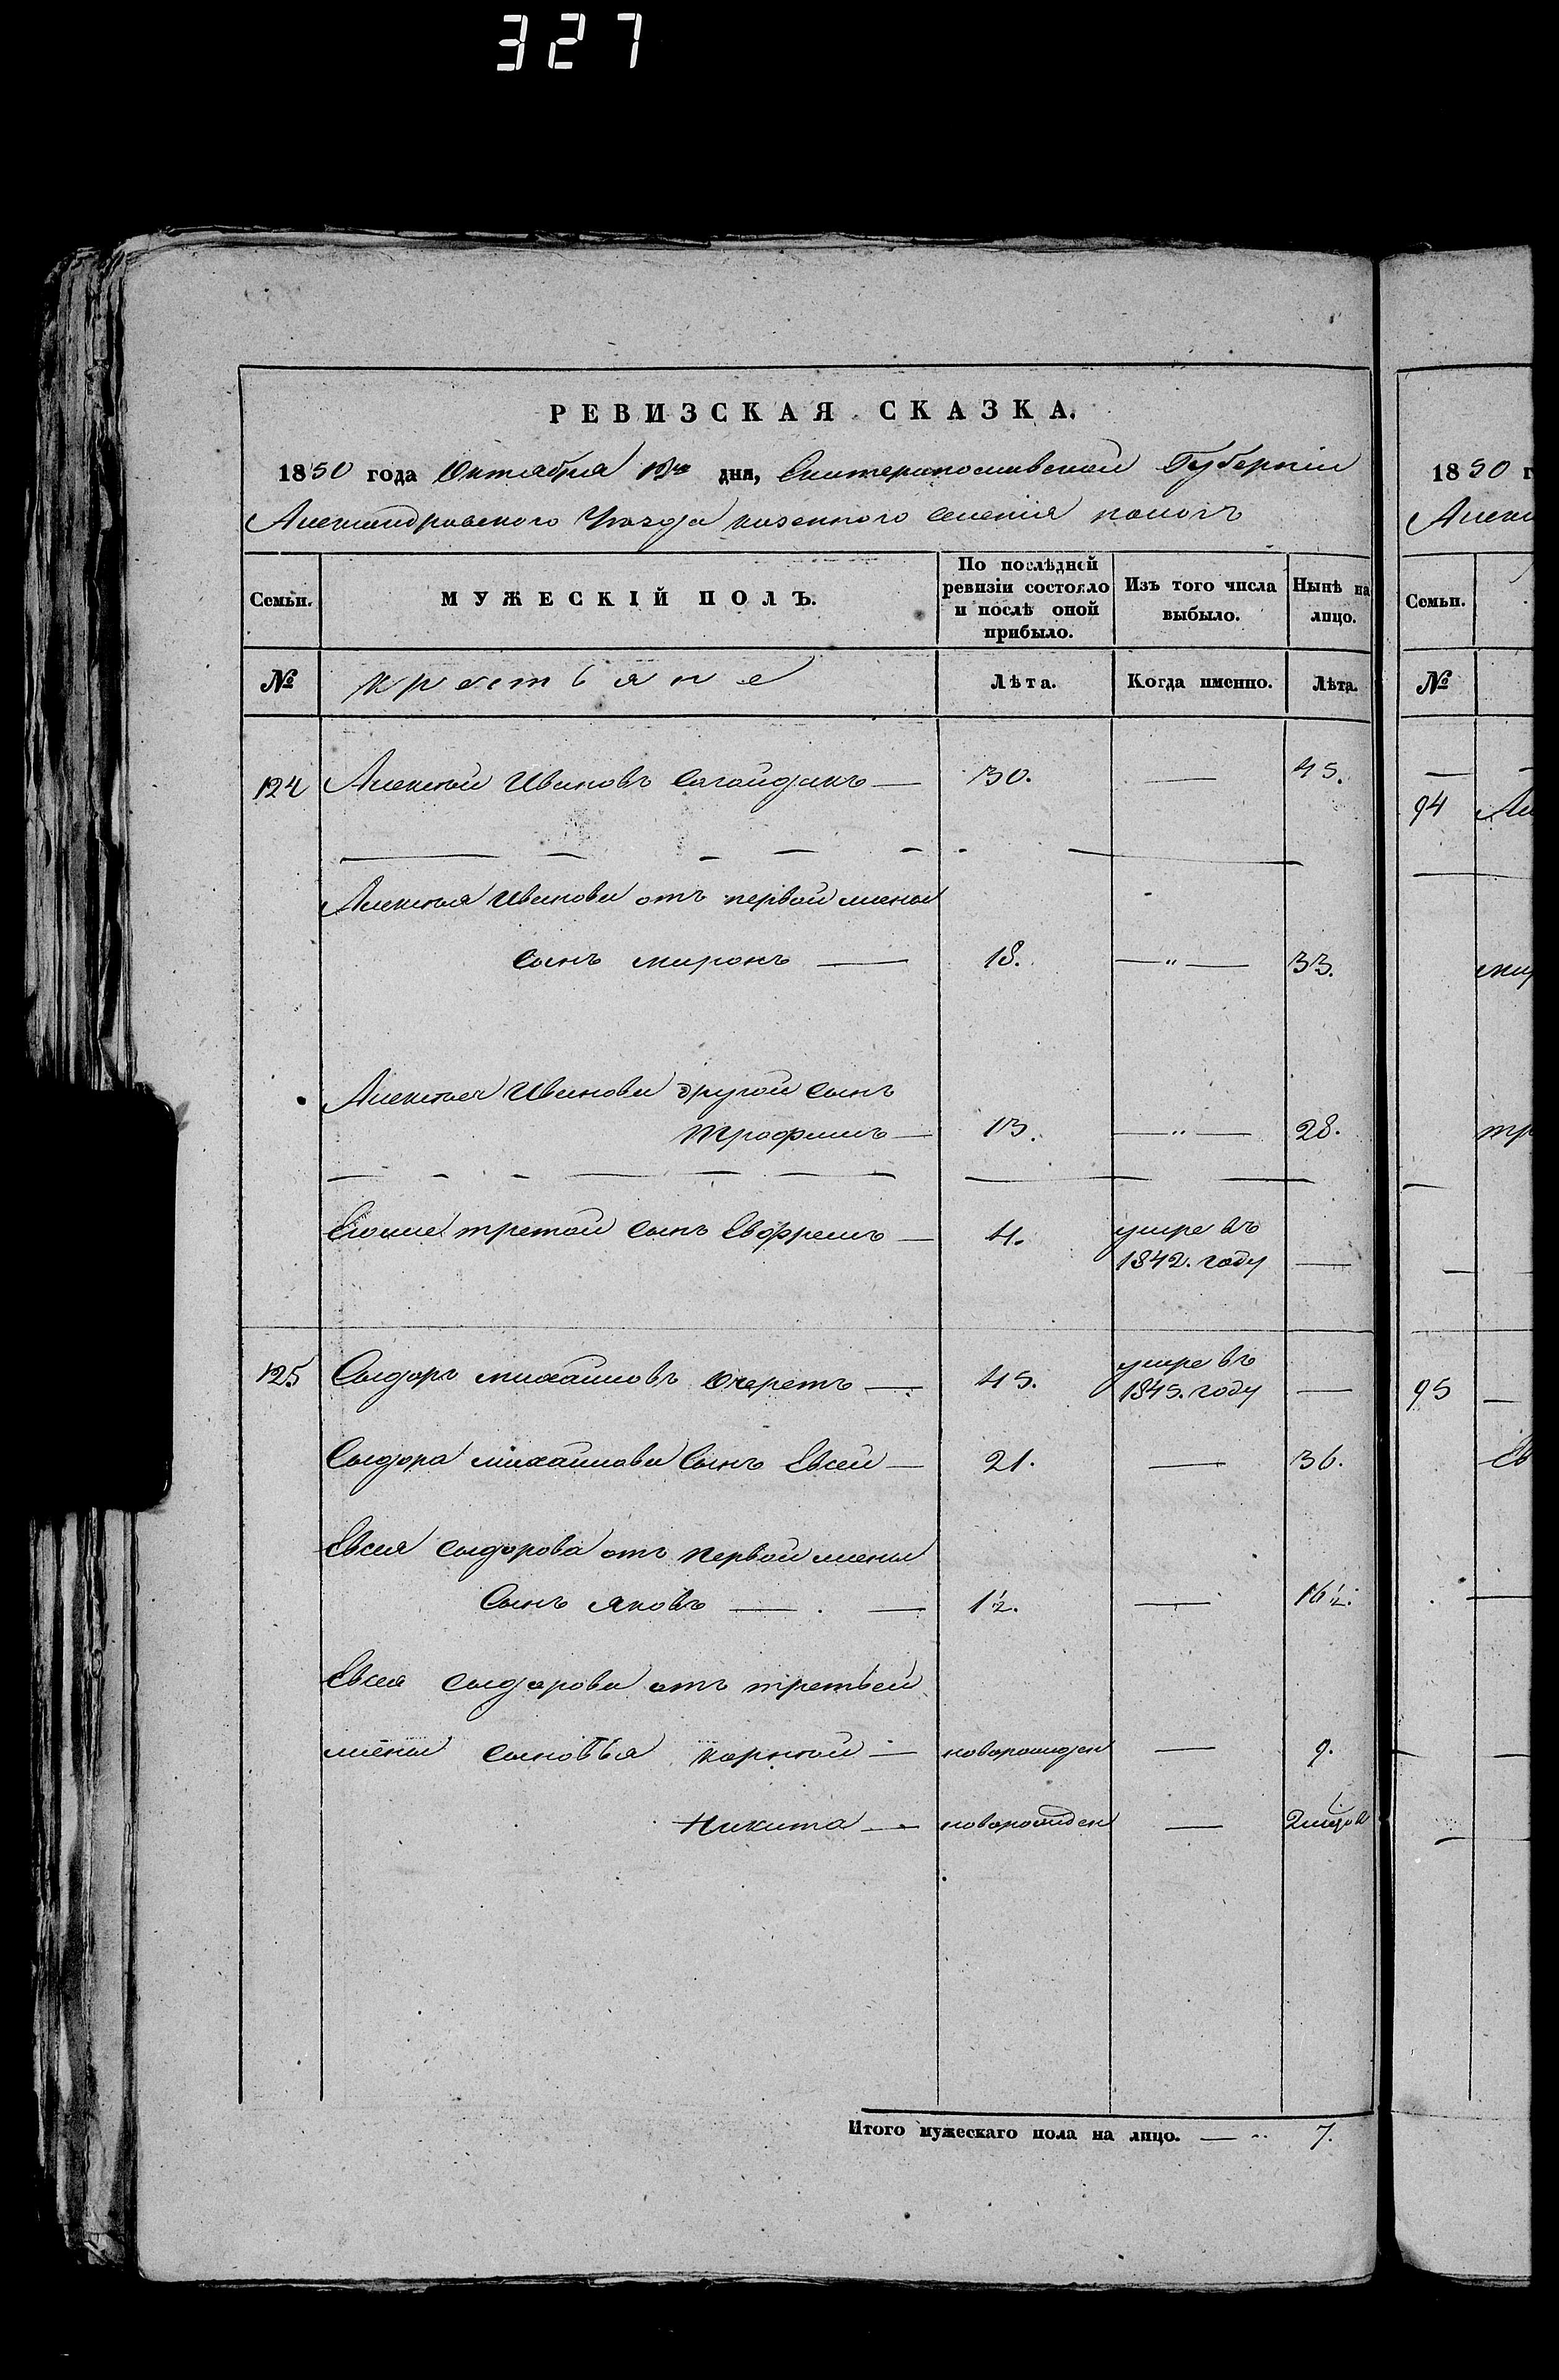 327
РЕВИЗСКАЯ СКАЗКА.
1850 года Октября дня, Екатеринославской Губернiи
Александровского Уезда казенного селенiя
Семьи. МУЖЕСКIЙ ПОЛЪ. По послѣдней ревизiи состояло и послѣ оной прибыло. Изъ того числа выбыло. Нынѣ на лицо.
№ крестьяне Лѣта. Когда именно. Лѣта.
124 Алексѣй Ивановъ Сагайдакъ — 30. — 45.
Алексѣя Иванова отъ первой жены
сынъ миронъ — 18. —"— 33.
Алексѣя Иванова другой сынъ
Трофимъ — 13. —"— 28.
Егоже третой сынъ Евфремъ — 4. умре въ
1842. году —
125 Сыдоръ михайловъ Очеретъ — 45. умре въ
1845. году —
Сыдора михайлова Сынъ Евсей — 21. — 36.
Евсея сыдорова отъ первой жены
Сынъ яковъ — 1½. — 16½.
Евсея сыдорова отъ третьей
жены сыновья корнѣй — новорожден — 9.
Никита — новорожден —
Итого мужескаго пола на лицо. — 7.
1850 г
№
94
95